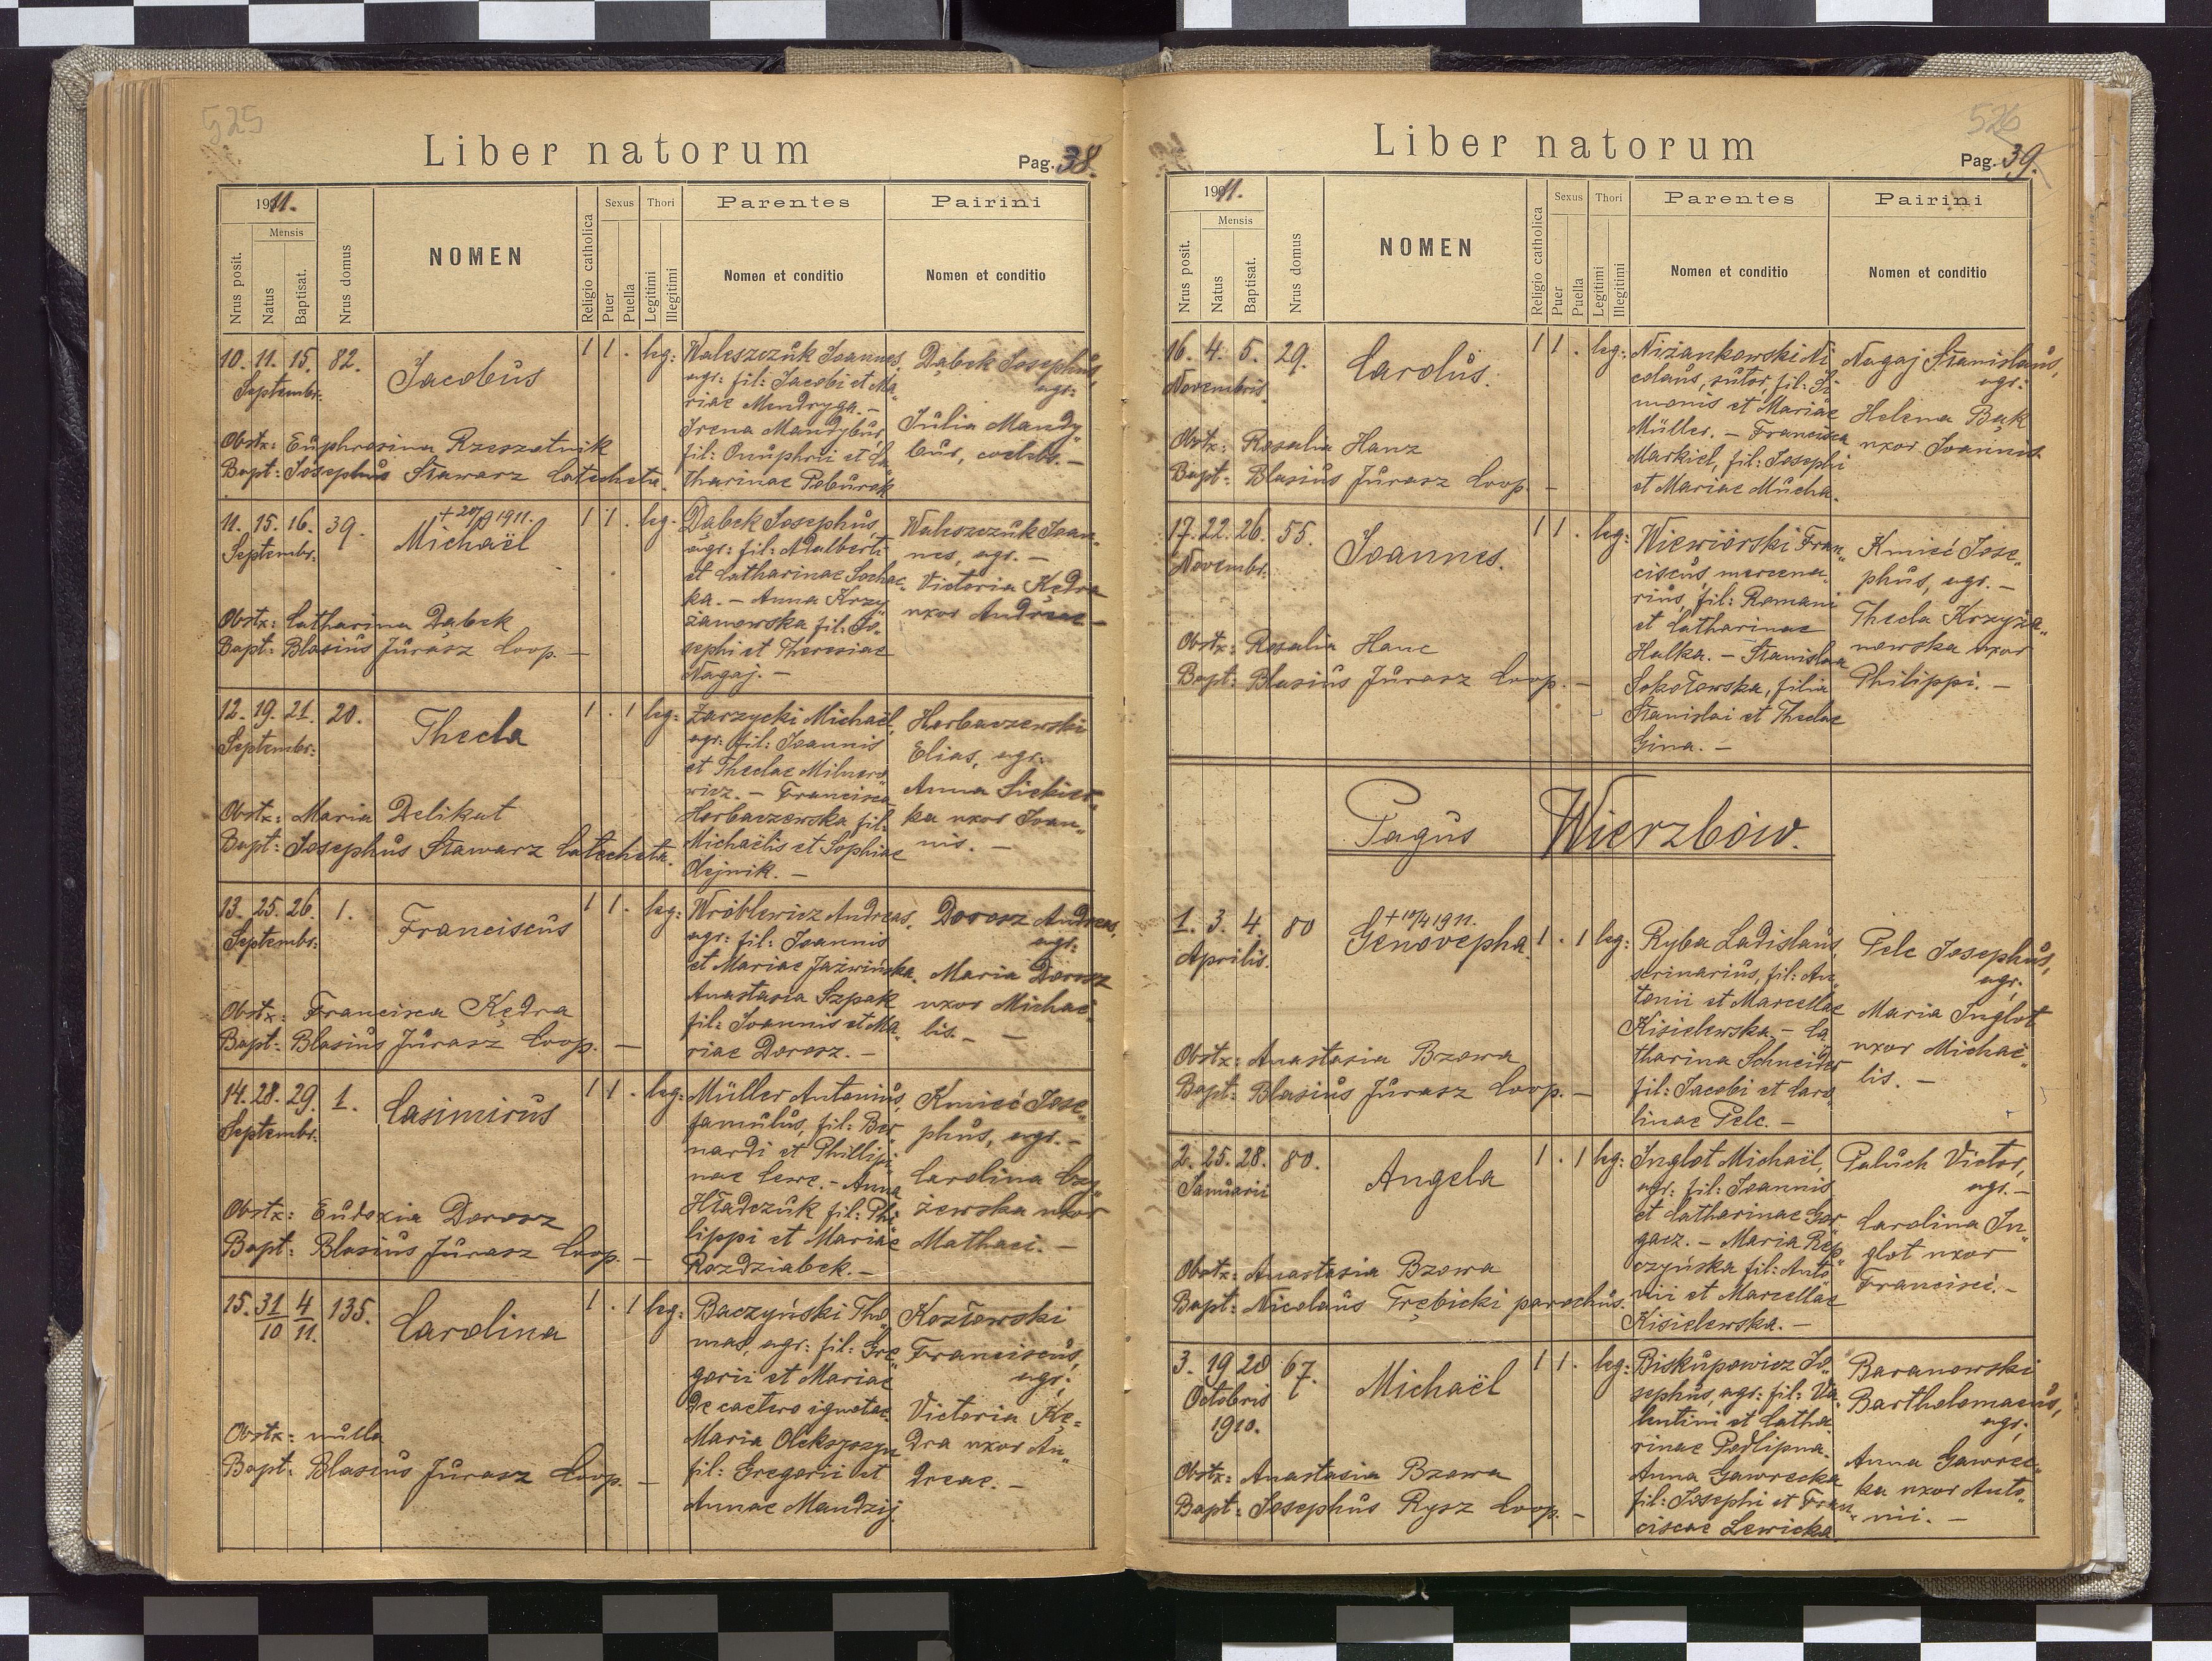 525
Liber natorum
Pag. 38.
1911.
Mensis
Nrus posit.
Natus
Baptisat.
Nrus domus
NOMEN
Religio catholica
Sexus
Puer
Puella
Thori
Legitimi
Illegitimi
Parentes
Nomen et conditio
Pairini
Nomen et conditio
10. 11. 15. 82.
Septembr.
Jacobus
1 1 . leg:
Waleszczuk Joannes,
agr: fil: Jacobi et Ma„
riae Mendryga. –
Irena Mandybur,
fil: Onuphrii et Ca„
tharinae Poburak
Dąbek Josephus,
agr:
Julia Mandy„
bur, coelebs. –
Obstx: Euphrosina Rzeszotnik
Bapt: Josephus Stawarz Catecheta.
11. 15. 16. 39.
Septembr.
+ 20/9 1911.
Michaël
1 1 . leg:
Dąbek Josephus,
agr: fil: Adalberti
et Catharinae Sochac„
ka. – Anna Krzy„
żanowska fil: Jo„
sephi et Theresiae
Nagaj. –
Waleszczuk Joan„
nes, agr. –
Victoria Kędra
uxor Andreae –
Obstx: Catharina Dąbek
Bapt: Blasius Jurasz Coop. –
12. 19. 21. 20.
Septembr:
Thecla
1 . 1 leg:
Zarzycki Michaël,
agr: fil: Joannis
et Theclae Milnero„
wicz. – Francisca
Horbaczewska fil:
Michaëlis et Sophiae
Olejnik. –
Horbaczewski
Elias, agr.
Anna Siekier„
ka uxor Joan„
nis. –
Obstx: Maria Delikat
Bapt: Josephus Stawarz Catecheta.
13. 25. 26. 1.
Septembr:
Franciscus
1 1 . leg:
Wróblewicz Andreas,
agr: fil: Joannis
et Mariae Jaźwińska.
Anastasia Szpak
fil: Joannis et Ma„
riae Dorosz. –
Dorosz Andreas,
agr:
Maria Dorosz
uxor Michaë„
lis. –
Obstx: Francisca Kędra
Bapt: Blasius Jurasz Coop. –
14. 28. 29. 1.
Septembr.
Casimirus
1 1 . leg:
Müller Antonius,
famulus, fil: Ber„
nardi et Phillipi„
nae Lewe. – Anna
Hładczuk fil: Phi„
lippi et Mariae
Rozdziabek. –
Kmieć Jose„
phus, agr. –
Carolina Czy„
żewska uxor
Mathaei. –
Obstx: Eudoxia Dorosz
Bapt: Blasius Jurasz Coop. –
15. 31/10 4/11 135.
Carolina
1 . 1 leg:
Baczyński Tho„
mas, agr: fil: Gre„
gorii et Mariae
de caetero ignotae.
Maria Olekszyszyn
fil: Gregorii et
Annae Mandzij.
Kozłowski
Franciscus,
agr:
Victoria Kę„
dra uxor An„
dreae. –
Obstx: nulla
Bapt: Blasius Jurasz Coop. –
526
Liber natorum
Pag. 39.
1911.
Mensis
Nrus posit.
Natus
Baptisat.
Nrus domus
NOMEN
Religio catholica
Sexus
Puer
Puella
Thori
Legitimi
Illegitimi
Parentes
Nomen et conditio
Pairini
Nomen et conditio
16. 4. 5. 29.
Novembris.
Carolus.
1 1 . leg:
Niżankowski Ni„
colaus, sutor, fil: Si„
monis et Mariae
Müller. – Francisca
Markiel, fil: Josephi
et Mariae Mucha.
Nagaj Stanislaus,
agr:
Helena Bąk
uxor Joannis.
Obstx: Rosalia Hanz
Bapt: Blasius Jurasz Coop. –
17. 22. 26. 55.
Novembr.
Joannes.
1 1 . leg:
Wiewiórski Fran„
ciscus, mercena„
rius, fil: Romani
et Catharinae
Halka. – Stanislaa
Sokołowska, filia
Stanislai et Theclae
Gina. –
Kmieć Jose„
phus, agr. –
Thecla Krzyża„
nowska uxor
Philippi. –
Obstx: Rosalia Hanc
Bapt: Blasius Jurasz Coop. –
Pagus Wierzbów.
1. 3. 4. 80
Aprilis.
+ 10/4 1911.
Genovepha
1 . 1 leg:
Ryba Ladislaus,
scrinarius, fil: An„
tonii et Marcellae
Kisielewska – Ca„
tharina Schneider
fil: Jacobi et Caro„
linae Pelc. –
Pelc Josephus,
agr:
Maria Inglot
uxor Michaë„
lis. –
Obstx: Anastasia Bzowa
Bapt: Blasius Jurasz Coop. –
2. 25. 28. 80.
Januarii
Angela
1 . 1 leg:
Inglot Michaël,
agr: fil: Joannis
et Catharinae Gor„
gacz. – Maria Rep„
czyńska fil: Anto„
nii et Marcellae
Kisielewska. –
Paluch Victor,
agr. –
Carolina In„
glot uxor
Francisci. –
Obstx: Anastasia Bzowa
Bapt: Nicolaus Trębicki parochus.
3. 19 20 67.
Octobris
1910.
Michaël
1 1 . leg:
Biskupowicz Jo„
sephus, agr: fil: Va„
lentini et Catha„
rinae Podlipna.
Anna Gawrecka
fil: Josephi et Fran„
ciscae Lewicka
Baranowski
Bartholomaeus,
agr:
Anna Gawrec„
ka uxor Anto„
nii. –
Obstx: Anastasia Bzowa
Bapt: Josephus Rysz Coop. –